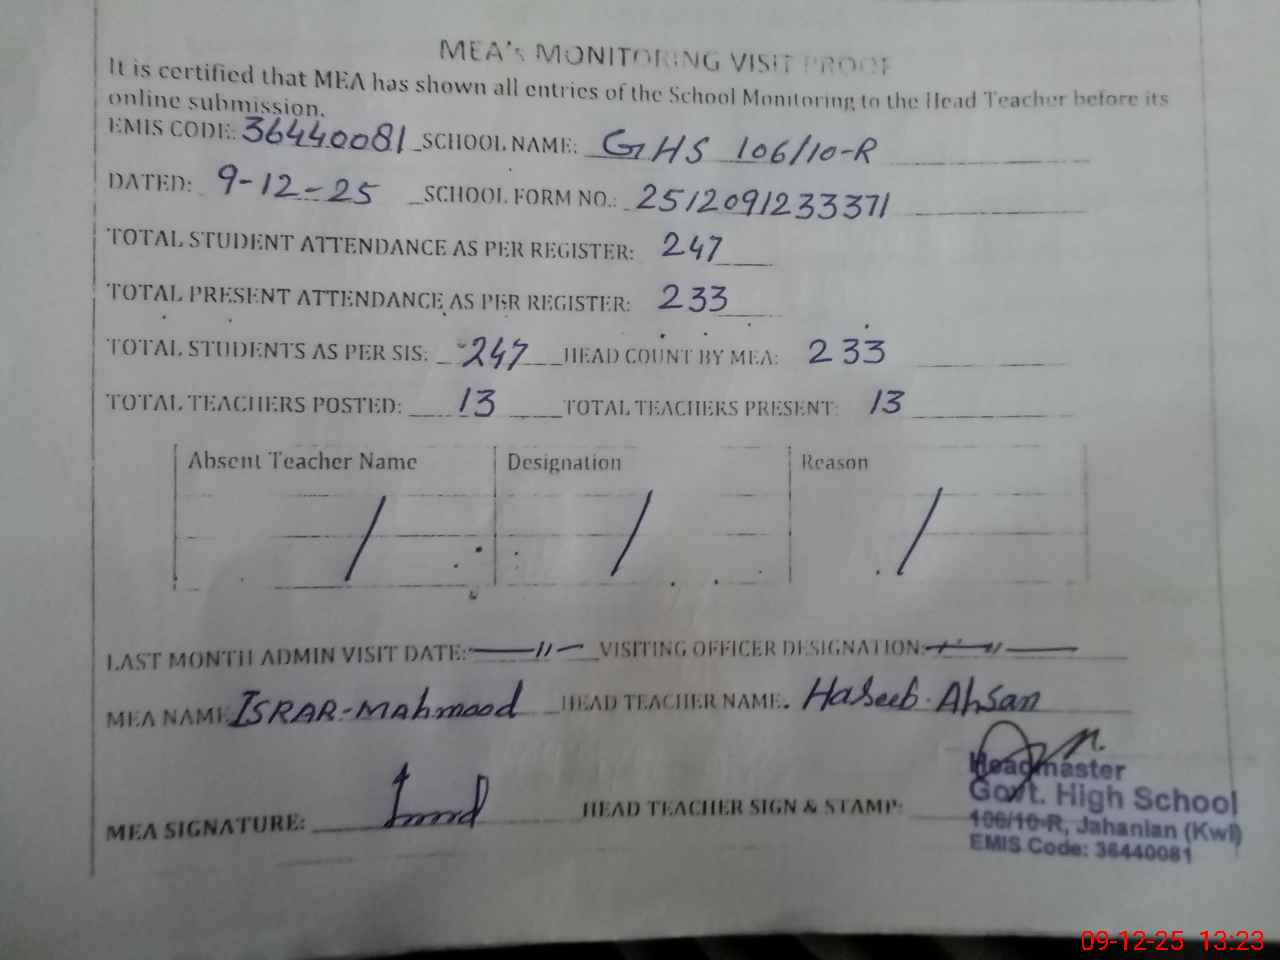 MEA's MONITORING VISIT PROOF
It is certified that MEA has shown all entries of the School Monitoring to the Head Teacher before its
online submission.
EMIS CODE: 36440081 SCHOOL NAME: GHS 106/10-R
DATED: 9-12-25 SCHOOL FORM NO.: 2512091233371
TOTAL STUDENT ATTENDANCE AS PER REGISTER: 247
TOTAL PRESENT ATTENDANCE AS PER REGISTER: 233
TOTAL STUDENTS AS PER SIS: 247 HEAD COUNT BY MEA: 233
TOTAL TEACHERS POSTED: 13 TOTAL TEACHERS PRESENT: 13
Absent Teacher Name Designation Reason
/ / /
LAST MONTH ADMIN VISIT DATE: —11— VISITING OFFICER DESIGNATION:
MEA NAME ISRAR-MAhmood HEAD TEACHER NAME. Haseeb. Ahsan
MEA SIGNATURE: HEAD TEACHER SIGN & STAMP:
Headmaster
Govt. High School
106/10-R, Jahanian (Kwl)
EMIS Code: 36440081
09-12-25 13:23